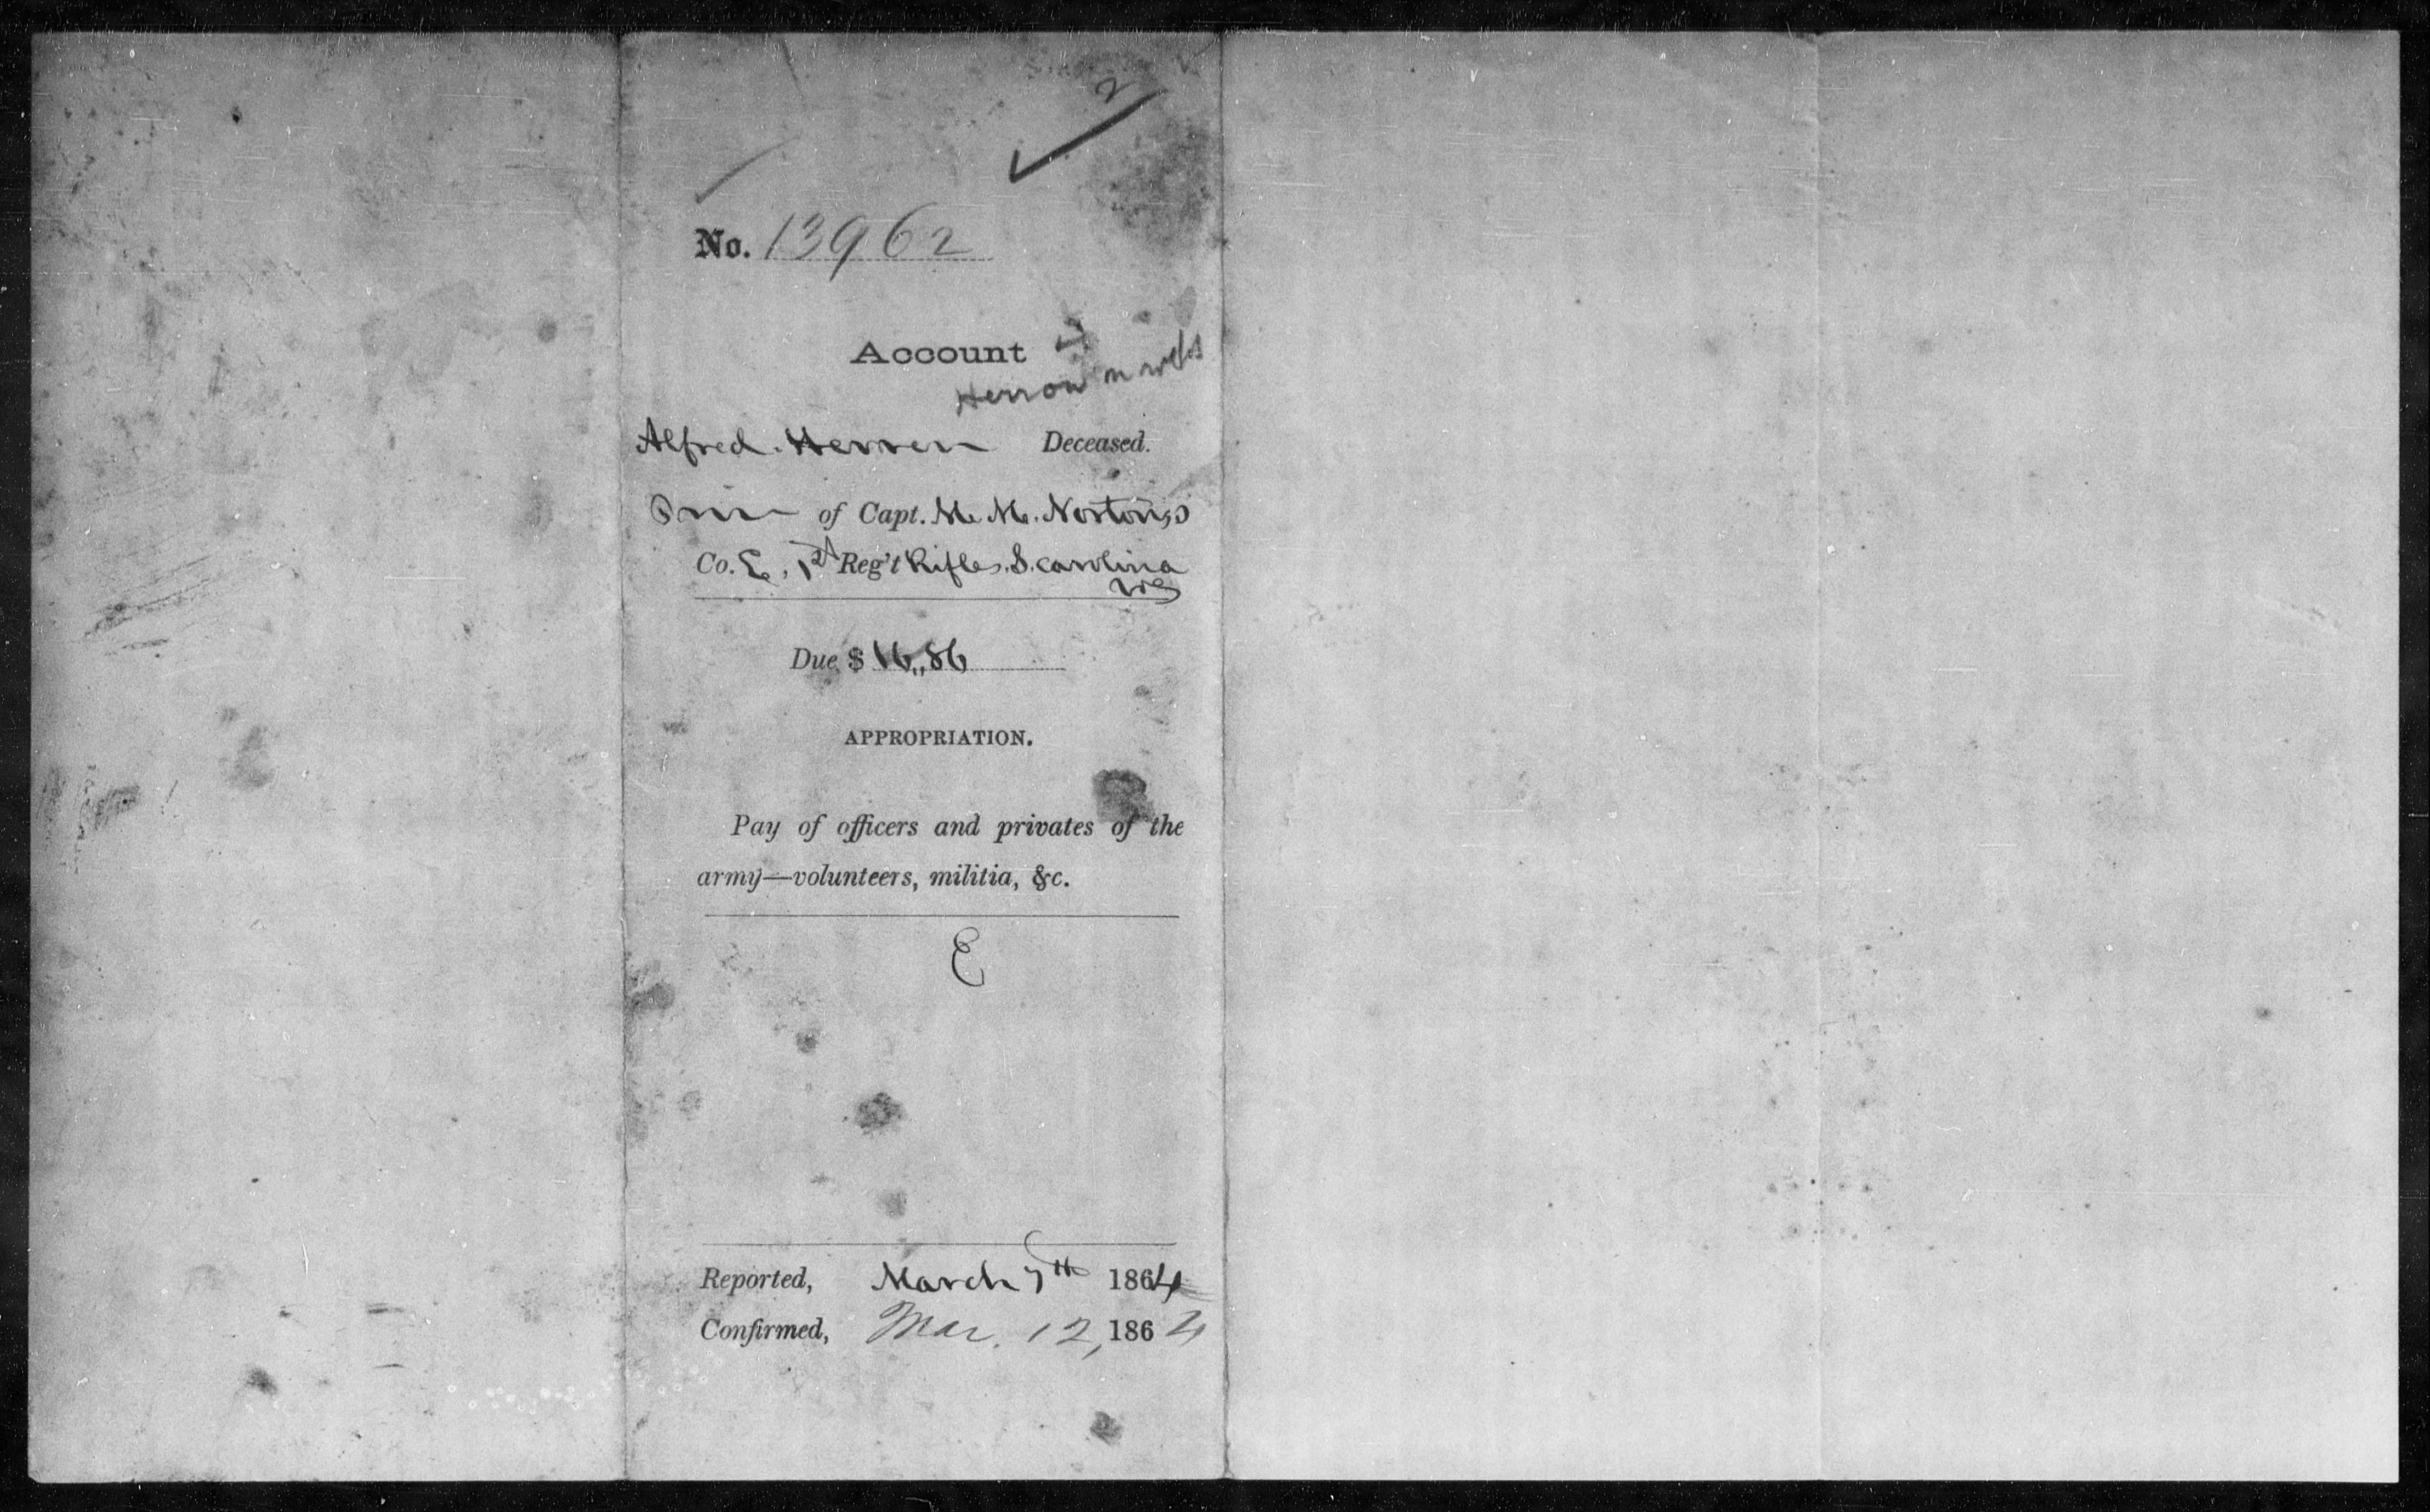 2
No. 13962
Account
Herron in
Alfred. Herren Deceased.
of Capt. M. M. Norton's
Co. E. 1st Reg't Rifles. S. Carolina
Vols
Due $ 16,,86
APPROPRIATION.
Pay of officers and privates of the
army—volunteers, militia, &c.
E
Reported, March 7th 1864
Confirmed, Mar. 12, 1864